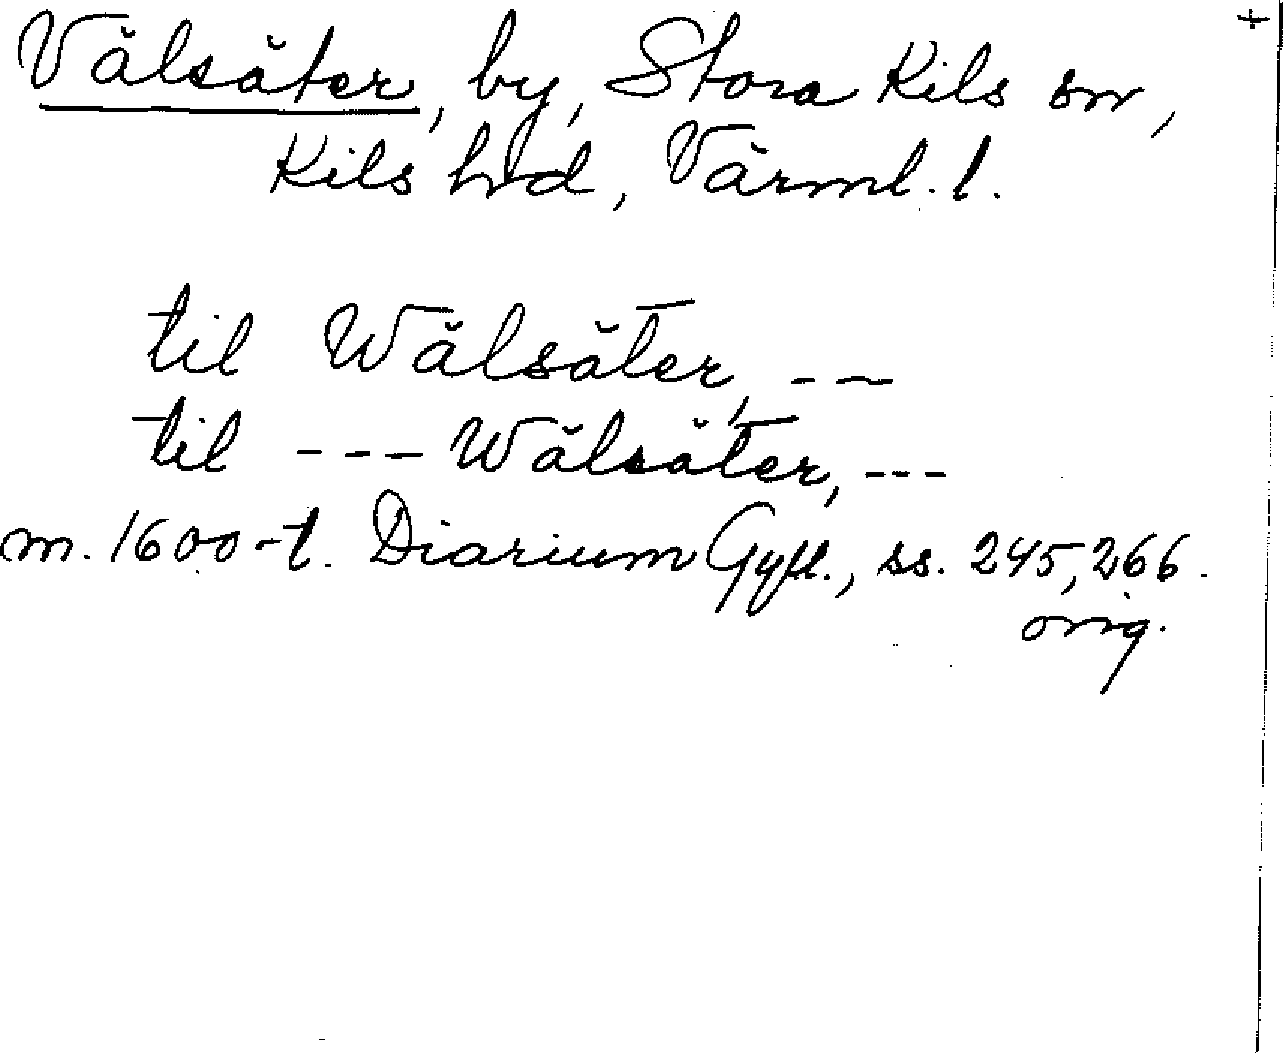 +
Välsäter, by, Stora Kils sn,
Kils hd, Värml. l.
til Wälsäter, ---
til --- Wälsäter, ---
m. 1600-t. Diarium Gyll., ss. 245, 266.
orig.